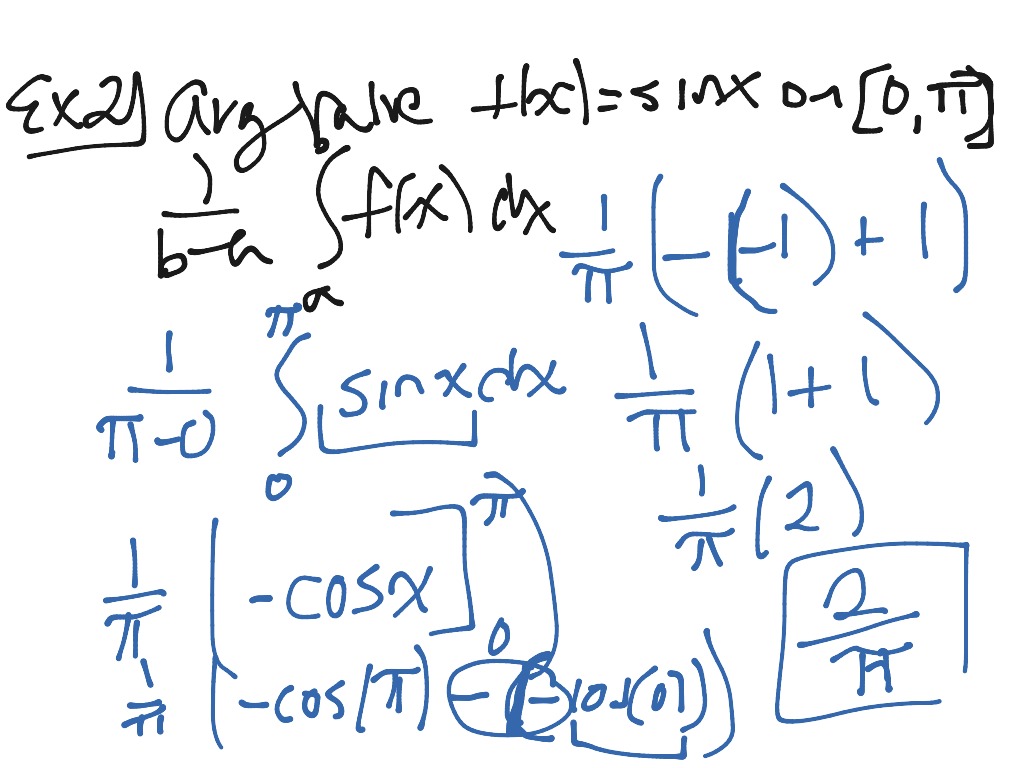 Ex2] avg value f(x) = sinx on [0, π]
1/(b-a) ∫_a^b f(x) dx
1/(π-0) ∫_0^π sinx dx
1/π ( -cosx ]_0^π )
1/π ( -cos(π) - (-cos(0)) )
1/π ( -(-1) + 1 )
1/π ( 1 + 1 )
1/π ( 2 )
2/π